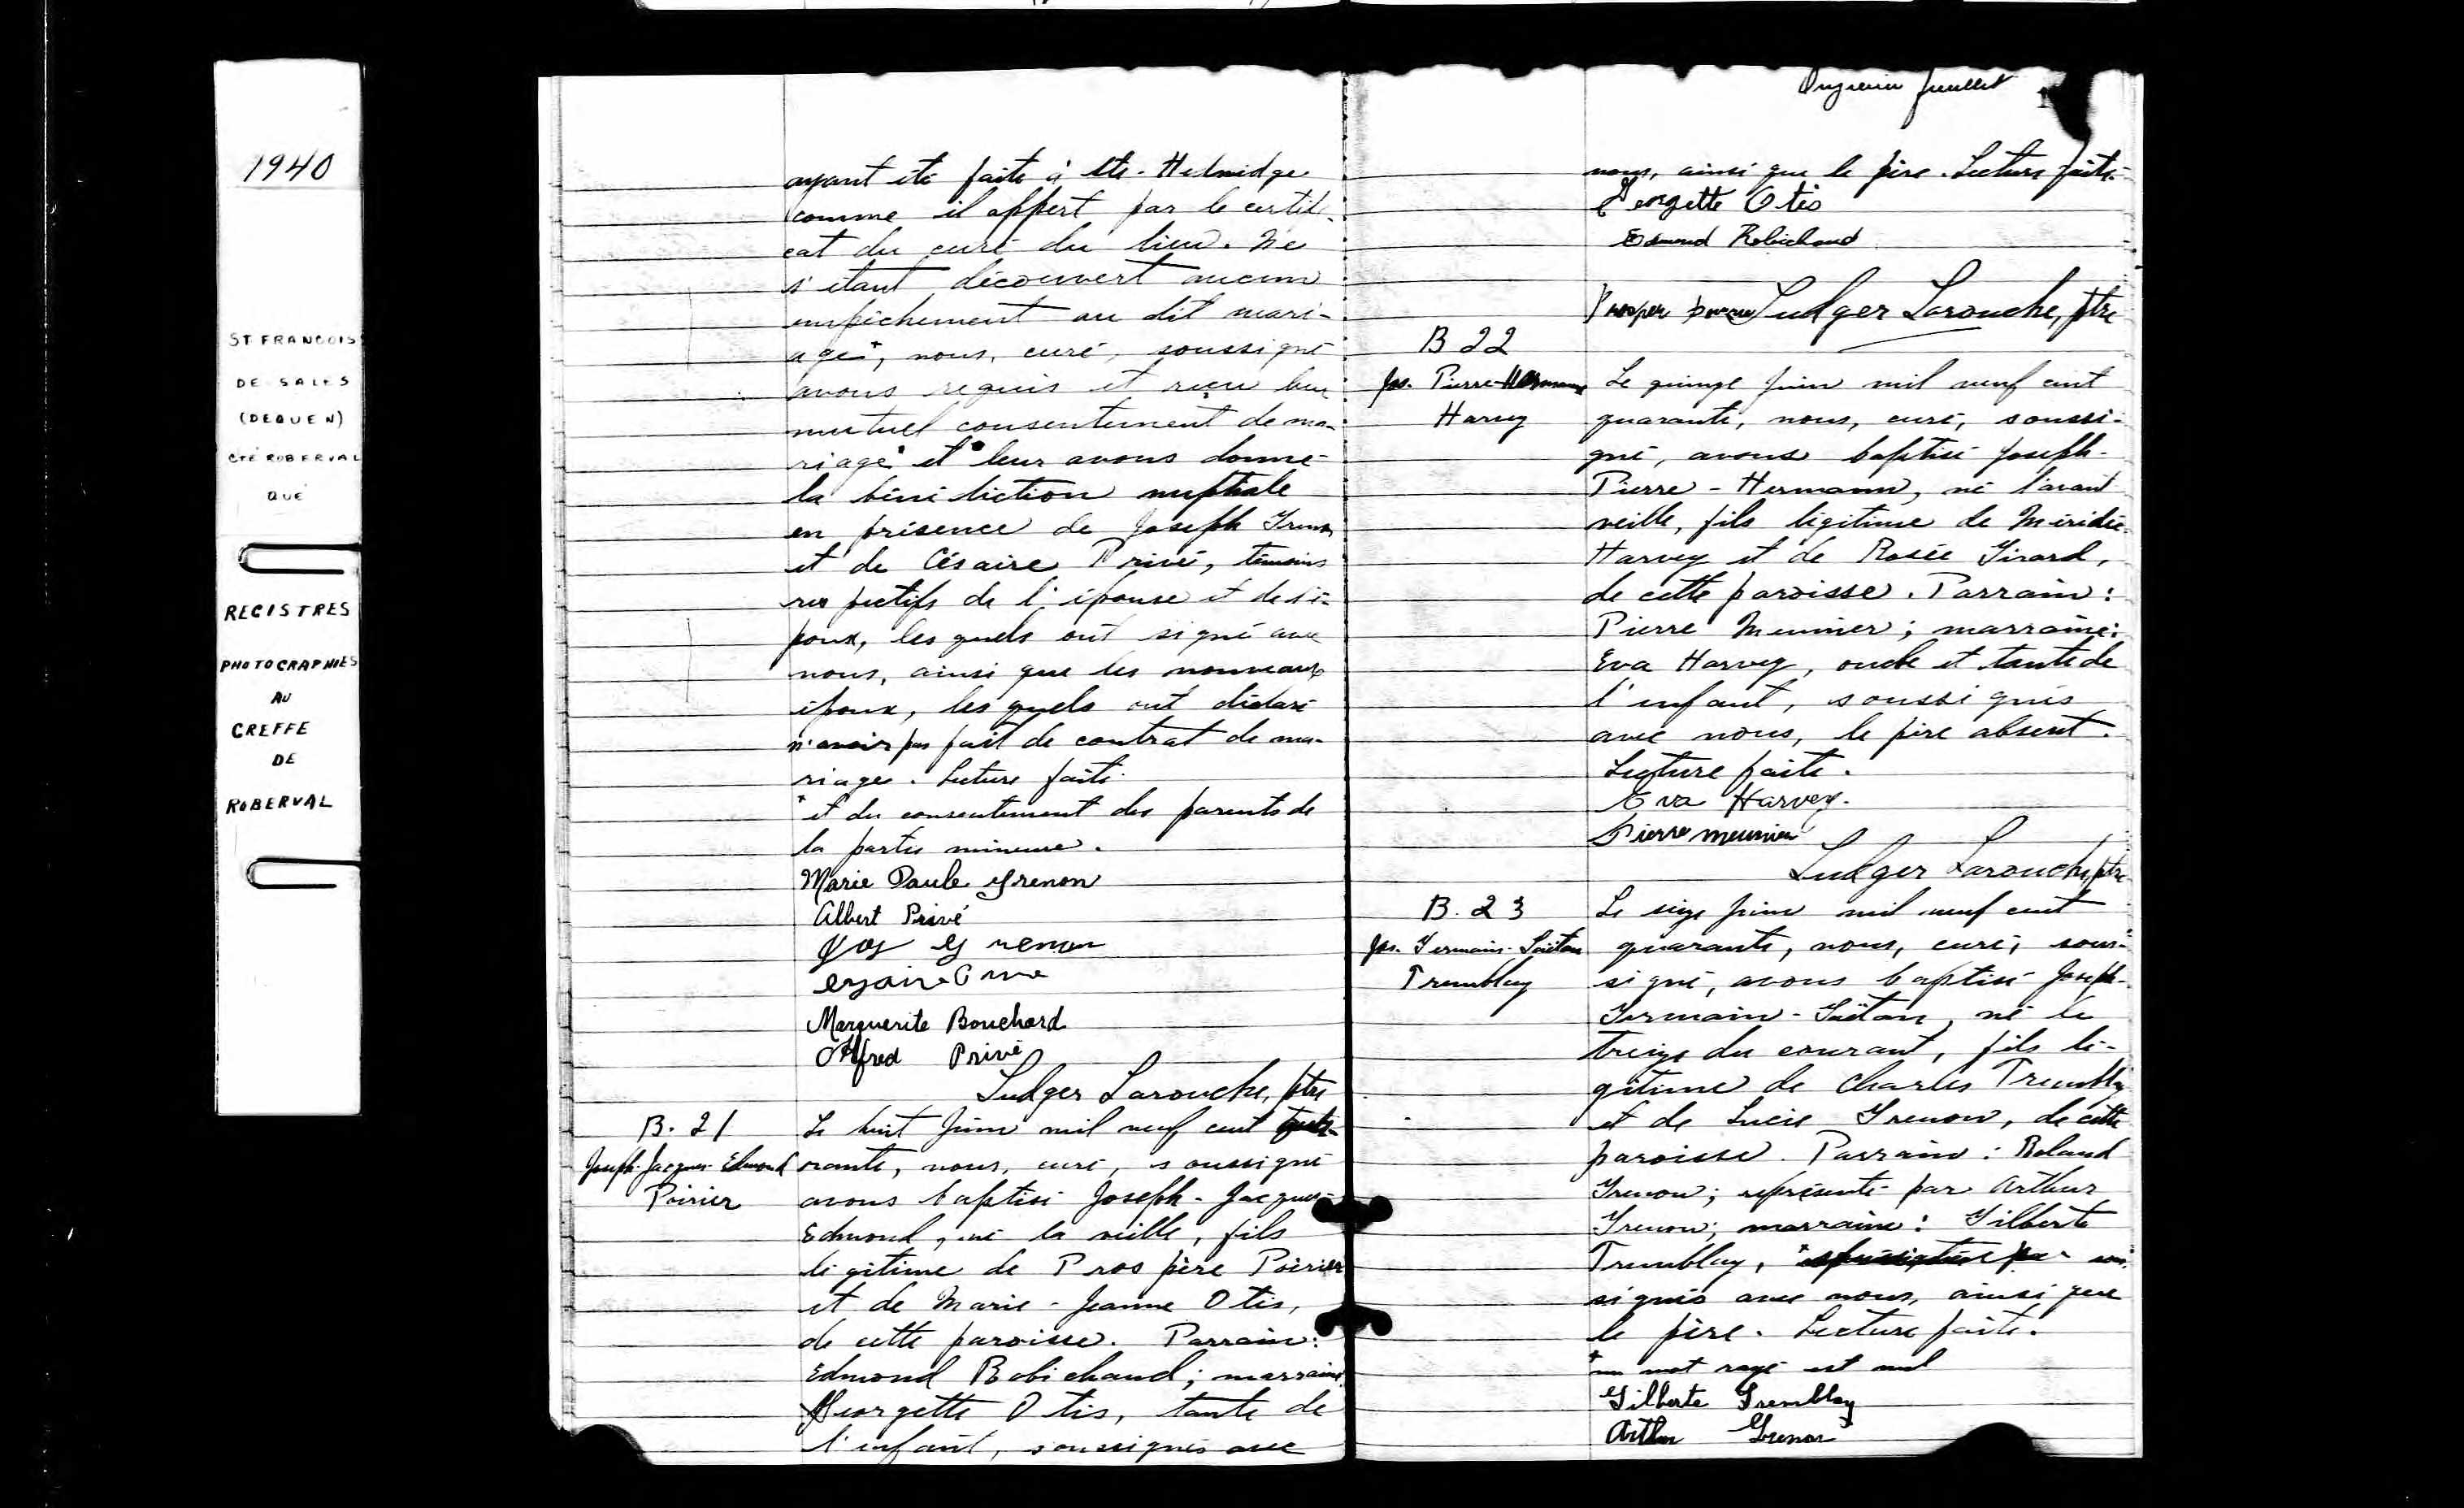 1940
ST FRANCOIS
DE SALES
(DEQUEN)
CTÉ ROBERVAL
QUÉ
REGISTRES
PHOTOGRAPHIÉS
AU
GREFFE
DE
ROBERVAL
ayant été faite à Ste-Hedwidge
comme il appert par le certifi-
cat du curé du lieu. Ne
s'étant découvert aucun
empêchement au dit mari-
age*, nous, curé, soussigné
avons requis et reçu leur
mutuel consentement de ma-
riage et leur avons donné
la bénédiction nuptiale
en présence de Joseph Grenon
et de Césaire Privé, témoins
respectifs de l'épouse et de l'é-
poux, lesquels ont signé avec
nous, ainsi que les nouveaux
époux, lesquels ont déclaré
n'avoir pas fait de contrat de ma-
riage. Lecture faite.
* et du consentement des parents de
la partie mineure.
Marie Paule Grenon
Albert Privé
Jos Grenon
Marguerite Bouchard
Alfred Privé
Ludger Larouche, ptre
B. 21
Joseph-Jacques-Edmond
Poirier
Le huit juin mil neuf cent qua-
rante, nous, curé, soussigné
avons baptisé Joseph-Jacques-
Edmond, né la veille, fils
légitime de Prospère Poirier
et de Marie-Jeanne Otis,
de cette paroisse. Parrain:
Edmond Robichaud; marraine:
Georgette Otis, tante de
l'enfant, soussignés avec
Onzième feuillet
nous, ainsi que le père. Lecture faite.
Georgette Otis
Edmond Robichaud
Prosper Ludger Larouche, ptre
B 22
Jos. Pierre-Hermann
Harvey
Le quinze juin mil neuf cent
quarante, nous, curé, soussi-
gné, avons baptisé Joseph-
Pierre-Hermann, né l'avant
veille, fils légitime de Méridée
Harvey et de Rosée Girard,
de cette paroisse. Parrain:
Pierre Meunier; marraine:
Eva Harvey, oncle et tante de
l'enfant, soussignés
avec nous, le père absent.
Lecture faite.
Eva Harvey.
Pierre meunier
Ludger Larouche, ptre
B. 23
Jos. Germain-Gaëtan
Tremblay
Le seize juin mil neuf cent
quarante, nous, curé, sous-
signé, avons baptisé Joseph-
Germain-Gaëtan, né le
treize du courant, fils lé-
gitime de Charles Tremblay
et de Lucie Grenon, de cette
paroisse. Parrain: Roland
Grenon; représenté par Arthur
Grenon; marraine: Gilberte
Tremblay, * sous-
signés avec nous, ainsi que
le père. Lecture faite.
* un mot rayé est nul
Gilberte Tremblay
Arthur Grenon